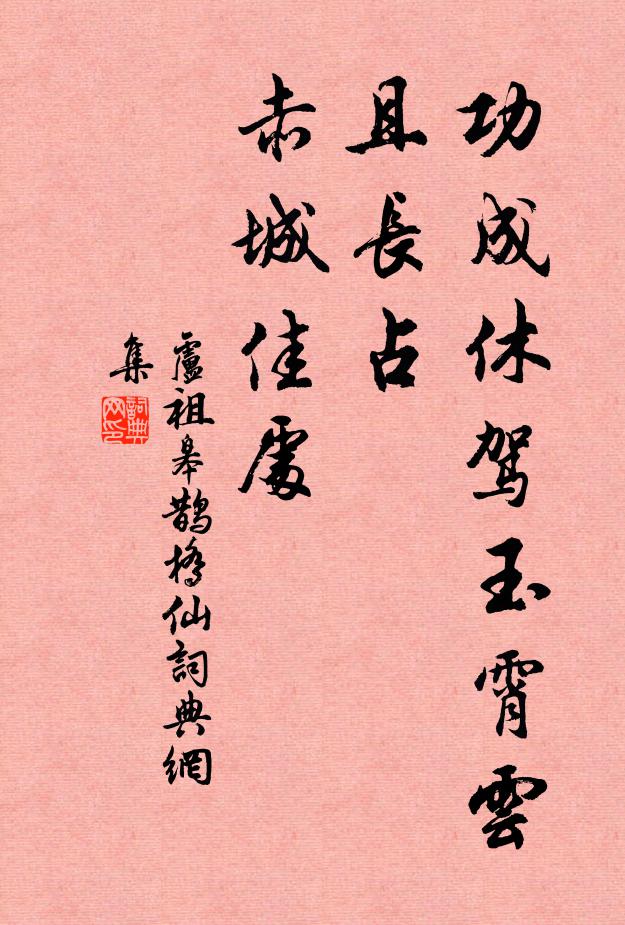 功成休驾玉霄雲
且長占
赤城佳處
盧祖皋鵲橋仙詞典網
集
詞典網印